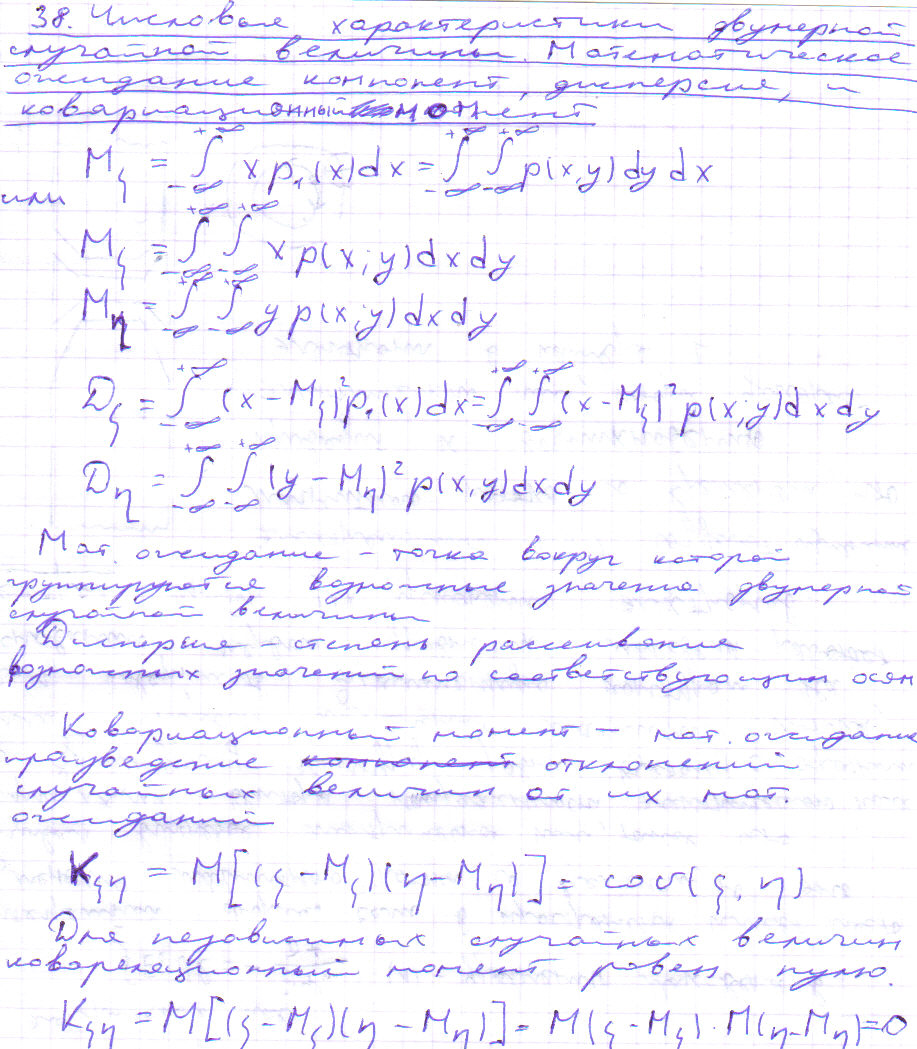 38. Числовые характеристики двумерной
случайной величины. Математическое
ожидание компонент, дисперсия, и
ковариационный момент
M_ξ = ∫_{-∞}^{+∞} x p₁(x)dx = ∫_{-∞}^{+∞} ∫_{-∞}^{+∞} p(x,y)dy dx
или
M_ξ = ∫_{-∞}^{+∞} ∫_{-∞}^{+∞} x p(x;y)dxdy
M_η = ∫_{-∞}^{+∞} ∫_{-∞}^{+∞} y p(x;y)dxdy
D_ξ = ∫_{-∞}^{+∞} (x-M_ξ)² p₁(x)dx = ∫_{-∞}^{+∞} ∫_{-∞}^{+∞} (x-M_ξ)² p(x;y)dxdy
D_η = ∫_{-∞}^{+∞} ∫_{-∞}^{+∞} (y-M_η)² p(x,y)dxdy
Мат. ожидание – точка вокруг которой
группируются возможные значения двумерной
случайной величины
Дисперсия – степень рассеивания
возможных значений по соответствующим осям
Ковариационный момент – мат. ожидание
произведение компонент отклонений
случайных величин от их мат.
ожиданий
K_ξη = M[(ξ-M_ξ)(η-M_η)] = cov(ξ,η)
Для независимых случайных величин
ковареляционный момент равен нулю.
K_ξη = M[(ξ-M_ξ)(η-M_η)] = M(ξ-M_ξ)·M(η-M_η)=0